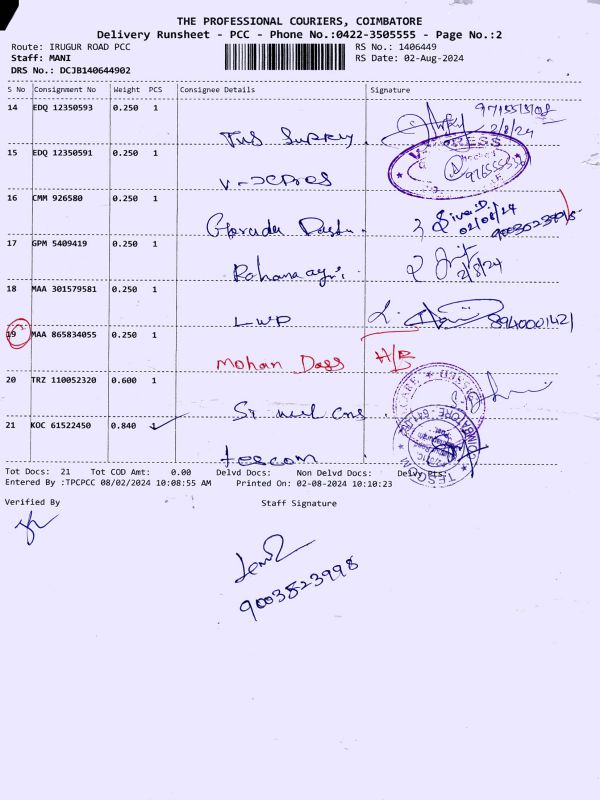 THE PROFESSIONAL COURIERS, COIMBATORE
Delivery Runsheet - PCC - Phone No.:0422-3505555 - Page No.:2
Route: IRUGUR ROAD PCC
RS No.: 1406449
Staff: MANI
RS Date: 02-Aug-2024
DRS No.: DCJB140644902
S No Consignment No Weight PCS Consignee Details Signature
14 EDQ 12350593 0.250 1
2/8/24
15 EDQ 12350591 0.250 1
16 CMM 926580 0.250 1
02/08/24
17 GPM 5409419 0.250 1
2/8/24
18 MAA 301579581 0.250 1
LWP 8940001421
19 MAA 865834055 0.250 1
Mohan Dass H/B
20 TRZ 110052320 0.600 1
21 KOC 61522450 0.840 1
tescom
Tot Docs: 21 Tot COD Amt: 0.00 Delvd Docs: Non Delvd Docs:
Entered By :TPCPCC 08/02/2024 10:08:55 AM Printed On: 02-08-2024 10:10:23
Verified By Staff Signature
9003523998